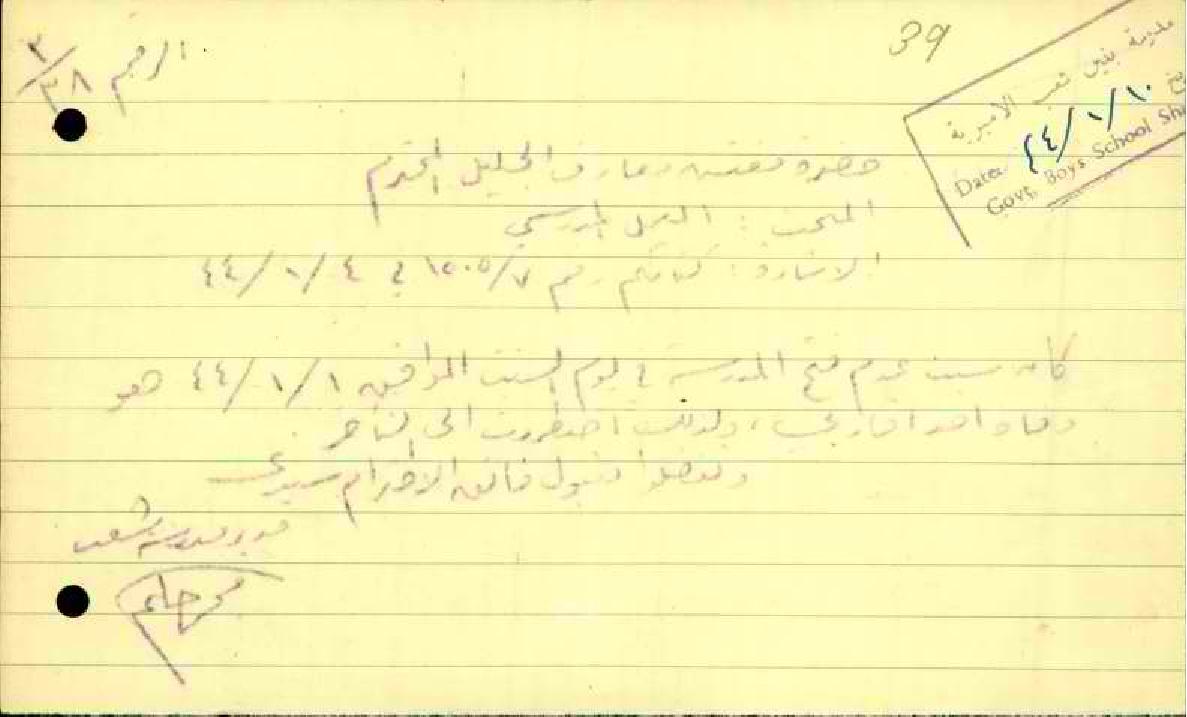 39
الرقم ٢/٣٨
مدرسة بنين شعب الاميرية
Date ٤٤/١/١٠
Govt. Boys School Sha
حضرة مفتش معارف الجليل المحترم
المبحث :  المدرسي
الاشارة : كتابكم رقم ١٥٠٥/٧ في ٤٤/١/٤
كان سبب عدم فتح المدرسة في يوم السبت الموافق ٤٤/١/١ هو
وفاة احد اقاربي ، ولذلك اضطررت الى التأخر
وتفضلوا بقبول فائق الاحترام سيدي
مدير مدرسة شعب